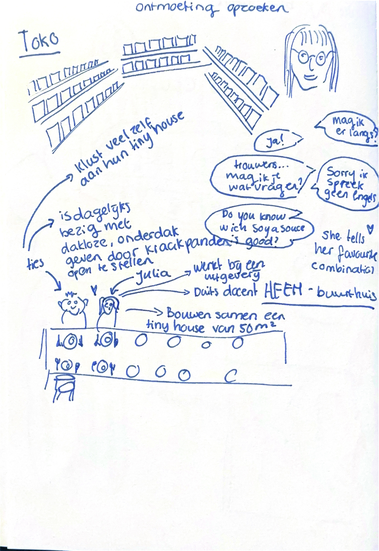 ontmoeting opzoeken
TOKO
mag ik
er langs?
Ja!
trouwens...
mag ik je
wat vragen?
Sorry ik
spreek
geen Engels
Do you know
wich soya souce
is good?
She tells
her favourite
combinatie
Klust veel zelf
aan hun tiny house
is dagelijks
bezig met
dakloze, onderdak
geven door kraakpanden
open te stellen
ties
Julia
werkt bij een
uitgeverij
Duits docent
HEEM - buurthuis
Bouwen samen een
tiny house van 50m²